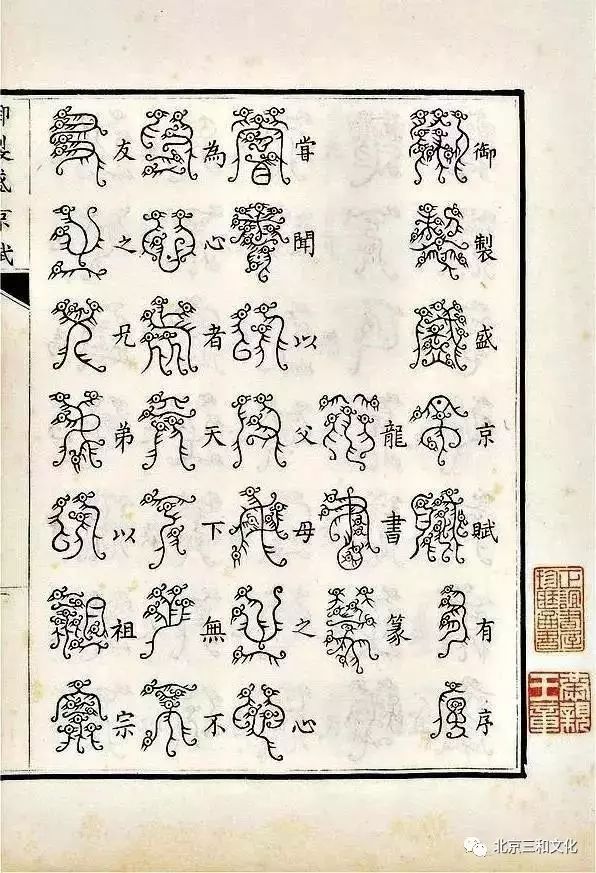 御製盛京賦有序
龍書篆
甞聞以父母之心
為心者天下無不
友之兄弟以祖宗
御製盛京賦
榮親王章
北京三和文化